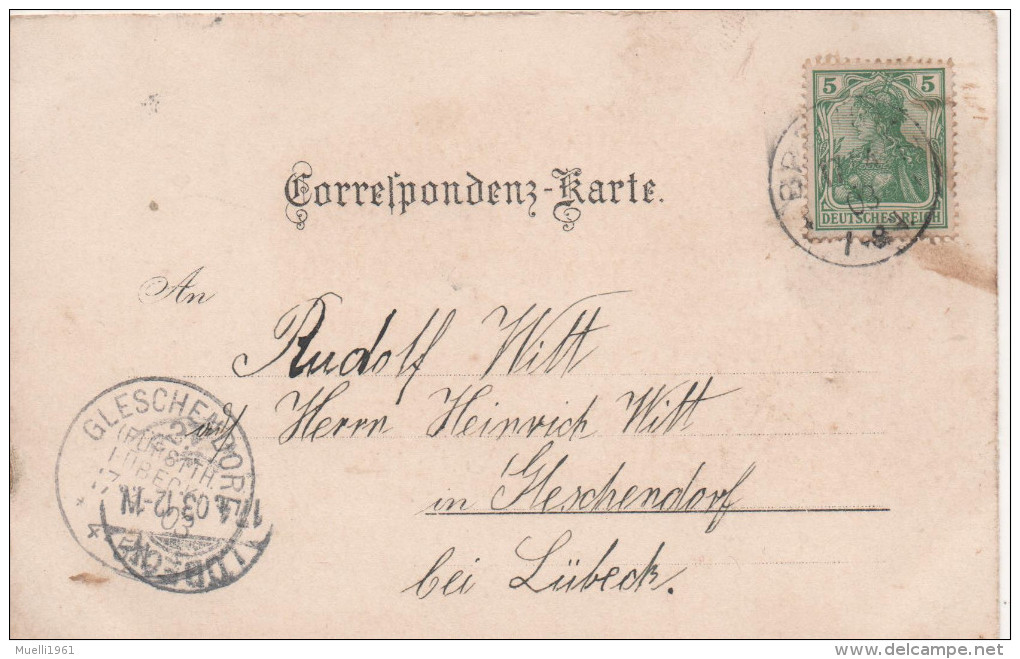 5 5
DEUTSCHES REICH
03
1-8 N.
Correspondenz-Karte.
An
Rudolf Witt
Herrn Heinrich Witt
in Gleschendorf
bei Lübeck.
GLESCHENDORF
(FÜRSTTH.
LÜBECK)
03
17.4.03.12-1N.
LÜBECK
Muelli1961
delcampe.net